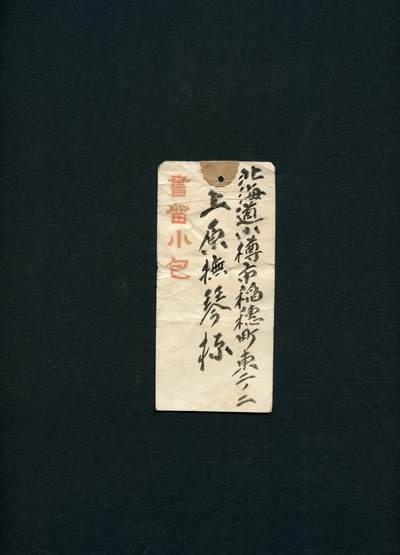 北海道小樽市稲穂町東二ノ二
上原撫琴様
書留小包